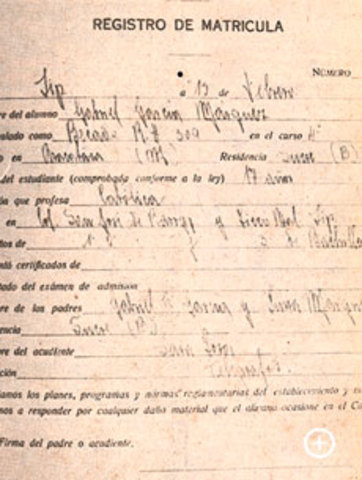 REGISTRO DE MATRICULA
NÚMERO
Zip a 13 de Febrero
re del alumno Gabriel García Márquez
ulado como Becado R.# 309 en el curso 4º
o en Aracataca (M) Residencia Sucre (B)
del estudiante (comprobada conforme a la ley) 17 años
ón que profesa Católica
en Col. San José de y Liceo Nal. Zip.
tos de 1º y de Bachille
ntó certificados de
tado del exámen de admisión
re de los padres Gabriel E. García y Luisa Márque
encia Sucre (B)
re del acudiente Sara
ción
ciamos los planes, programas y normas reglamentarias del establecimiento y
mos a responder por cualquier daño material que el alumno ocasione en el Co
Firma del padre o acudiente.